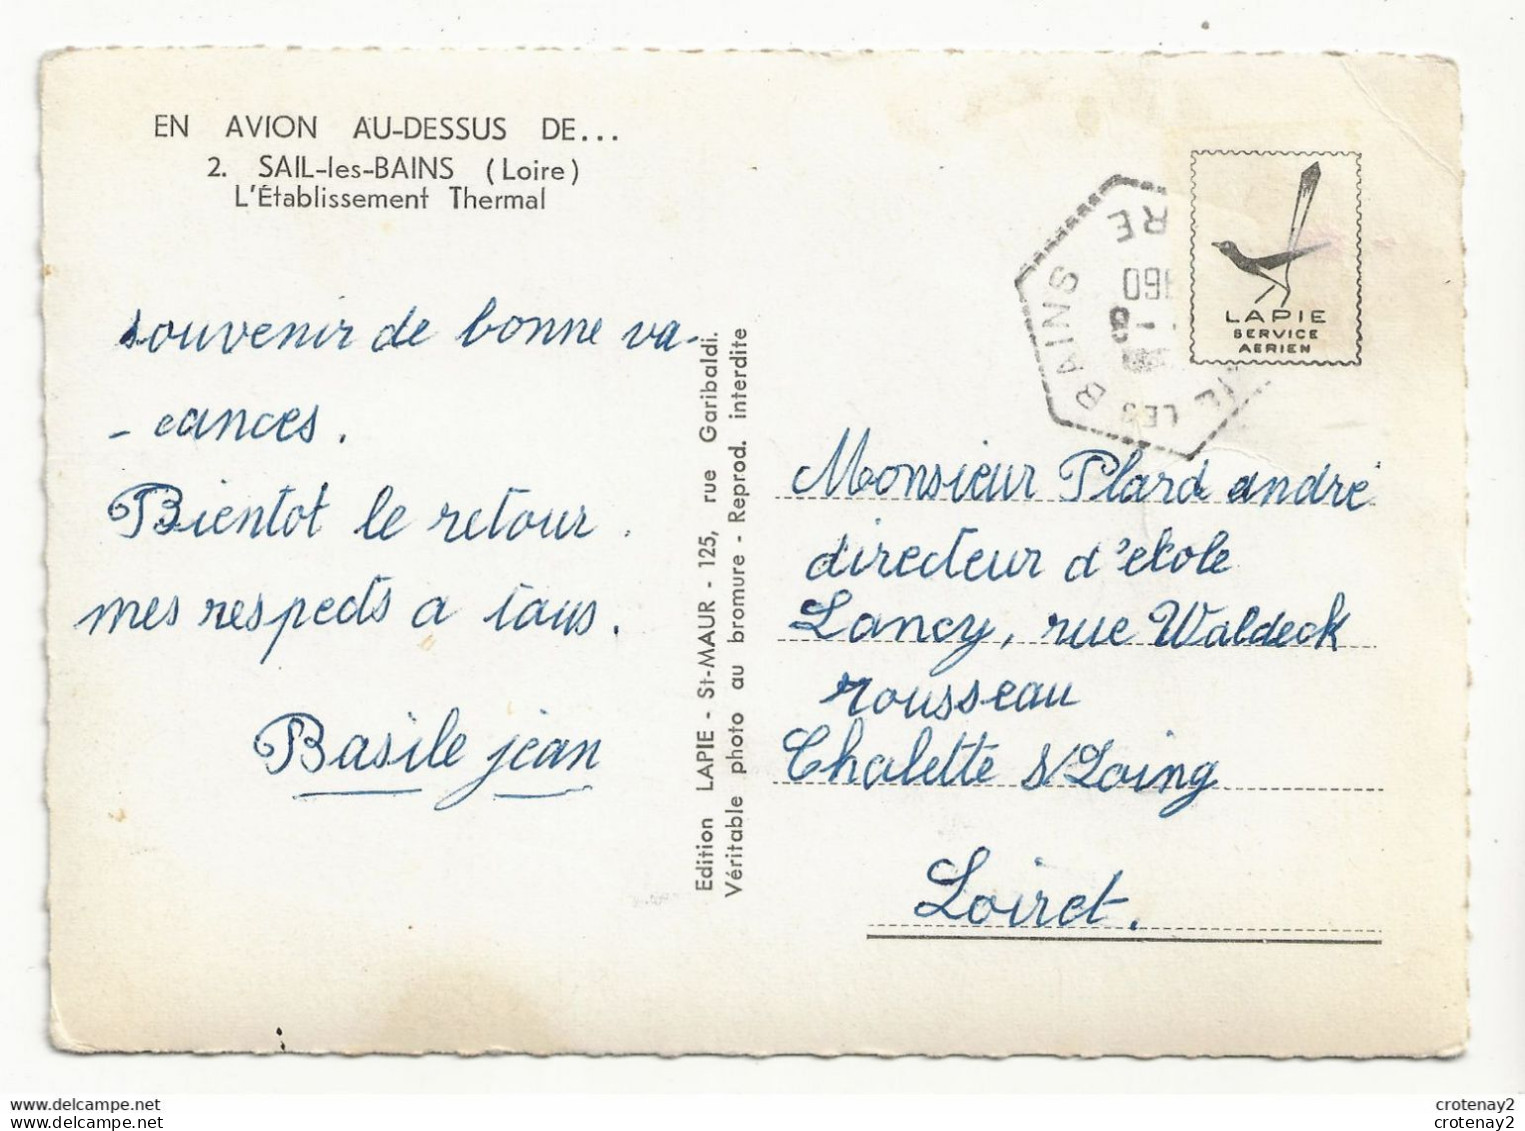 EN AVION AU-DESSUS DE...
2. SAIL-les-BAINS (Loire)
L'Établissement Thermal
souvenir de bonne va-
- cances.
Bientot le retour.
mes respects a tous.
Basile jean
Edition LAPIE - St-MAUR - 125, rue Garibaldi.
Véritable photo au bromure - Reprod. interdite
LES BAINS
RE
960
LAPIE
SERVICE
AERIEN
Monsieur Plard andré
directeur d'ekole
Lancy, rue Waldeck
rousseau
Chalette s/Loing
Loiret.
crotenay2
crotenay2
crotenay2
crotenay2